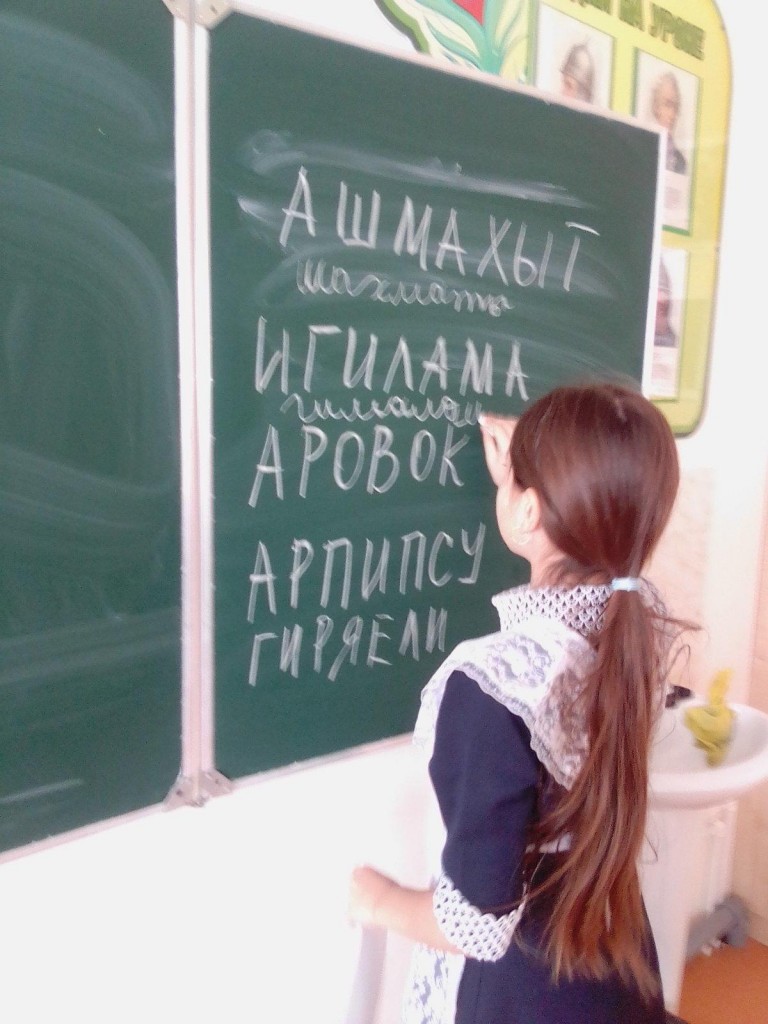 НА УРОКЕ
АШМАХЫТ
шахматы
ИГИЛАМА
гималаи
АРОВОК
АРПИПСУ
ГИРЯЕЛИ